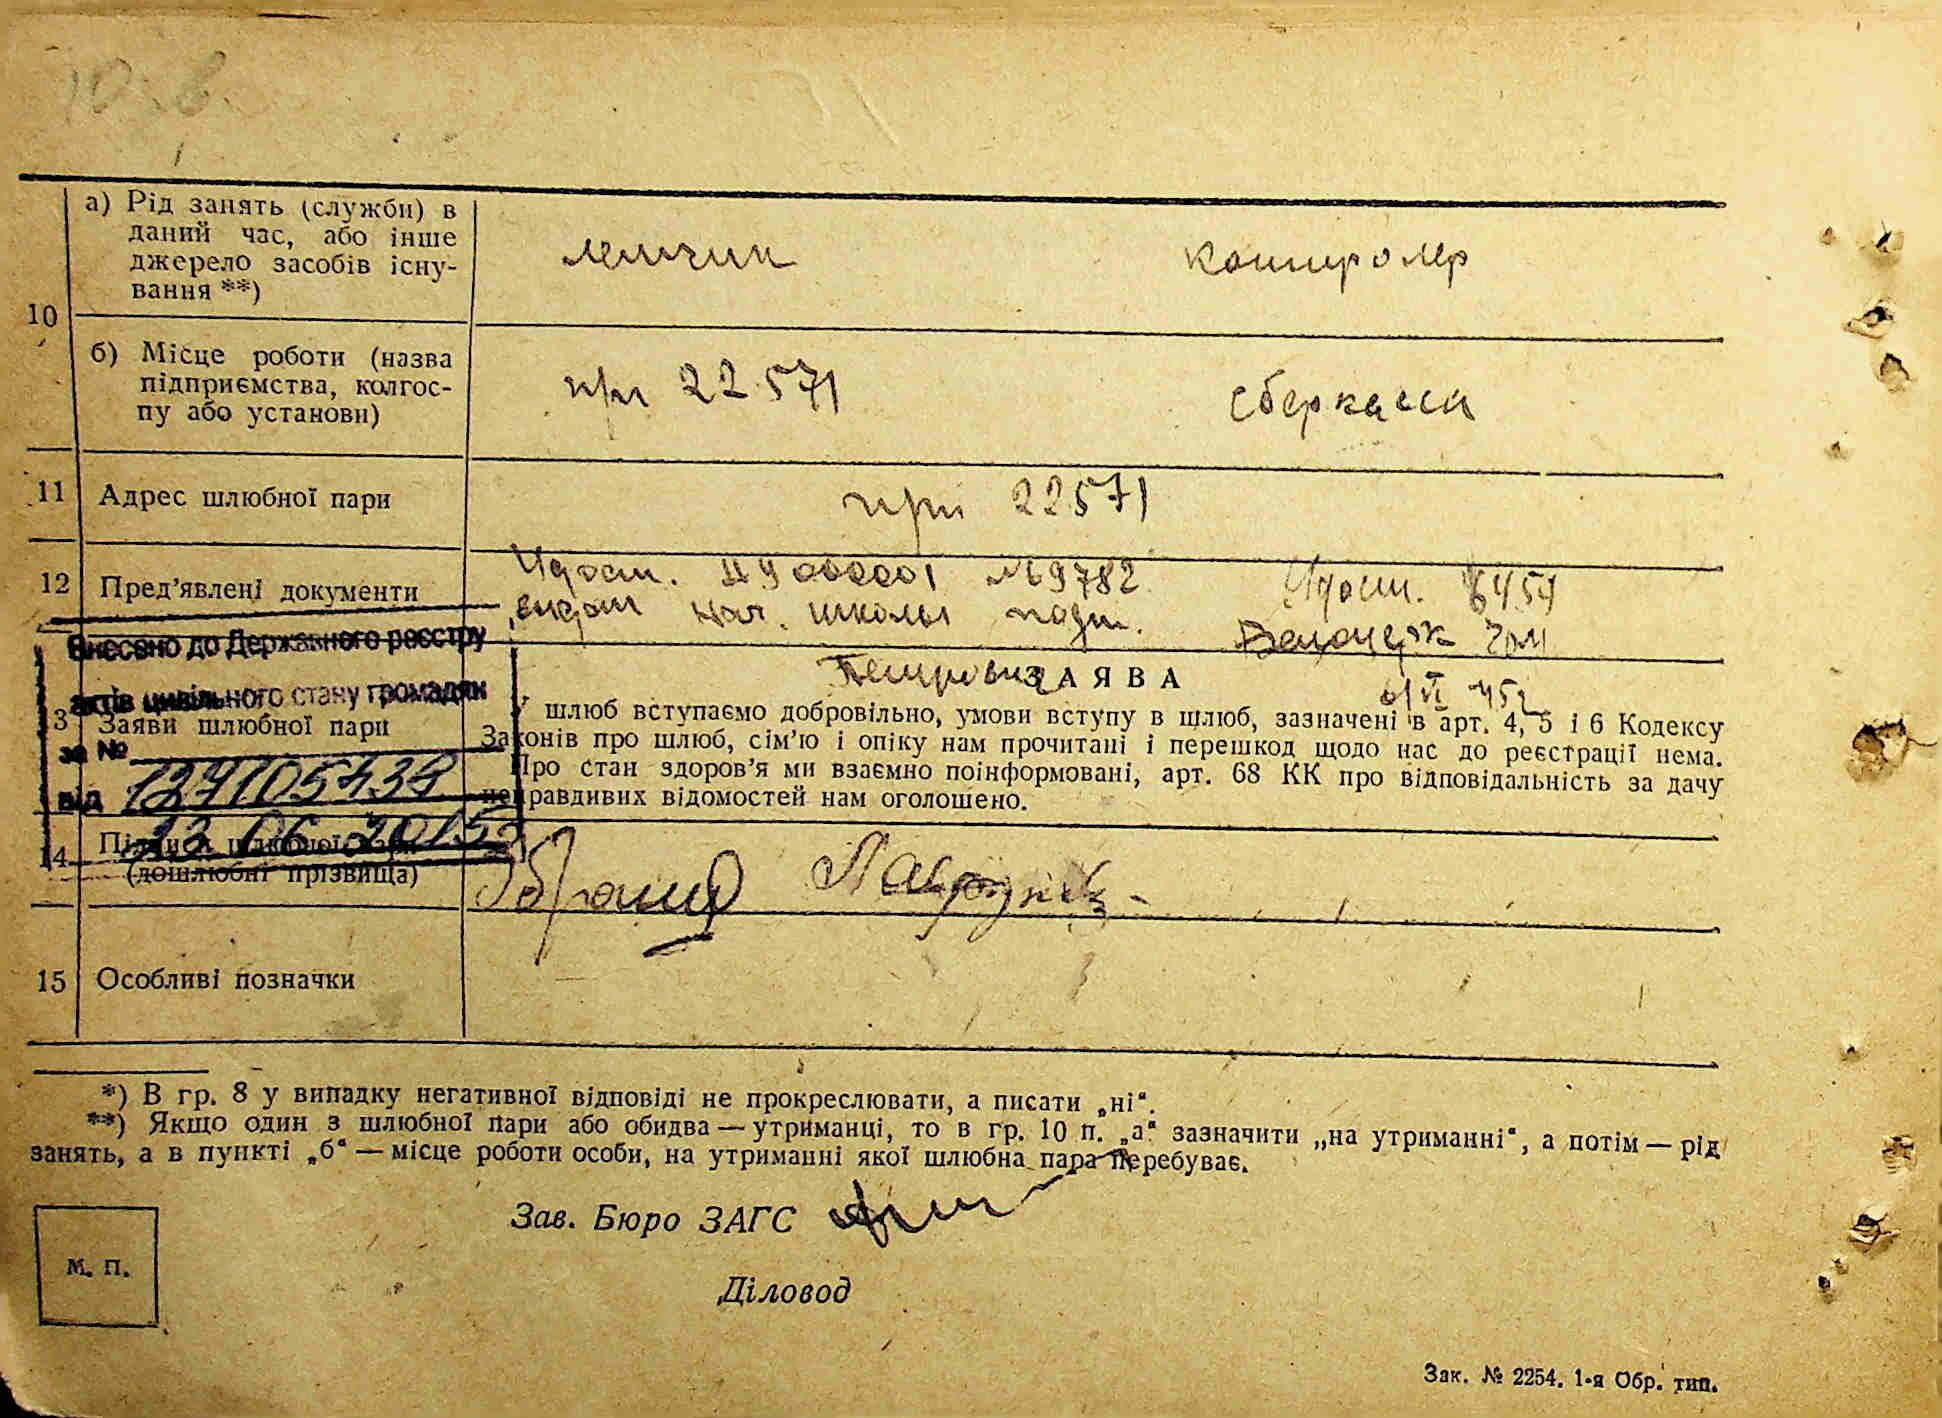 а) Рід занять (служби) в
даний час, або інше
джерело засобів існу-
вання **)
летчик контролер
10
б) Місце роботи (назва
підприємства, колгос-
пу або установи)
п/я 22571 сберкасса
11 Адрес шлюбної пари
22571
12 Пред'явлені документи
Удост. №69782 Удост.
нач. школы
Внесено до Державного реєстру
актів цивільного стану громадян
за № 129105438
від 12 06 2015
ЗАЯВА
Заяви шлюбної пари
У шлюб вступаємо добровільно, умови вступу в шлюб, зазначені в арт. 4, 5 і 6 Кодексу
Законів про шлюб, сім'ю і опіку нам прочитані і перешкод щодо нас до реєстрації нема.
Про стан здоров'я ми взаємно поінформовані, арт. 68 КК про відповідальність за дачу
неправдивих відомостей нам оголошено.
14 Підписи шлюбної пари
(дошлюбні прізвища)
15 Особливі позначки
*) В гр. 8 у випадку негативної відповіді не прокреслювати, а писати „ні“.
**) Якщо один з шлюбної пари або обидва — утриманці, то в гр. 10 п. „а“ зазначити „на утриманні“, а потім — рід
занять, а в пункті „б“ — місце роботи особи, на утриманні якої шлюбна пара перебуває.
Зав. Бюро ЗАГС
М. П.
Діловод
Зак. № 2254. 1-я Обр. тип.